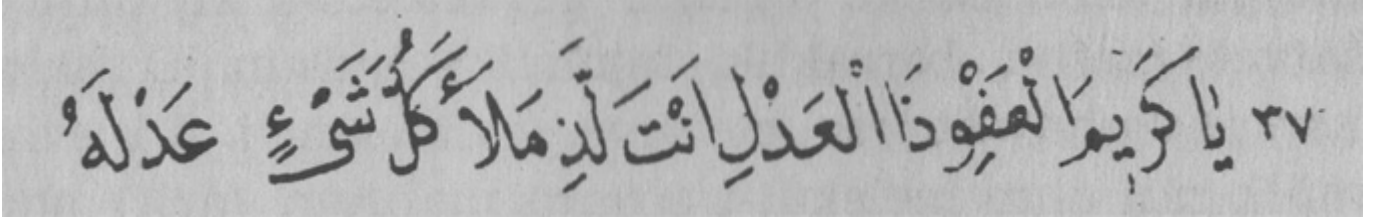 ٣٧ يَا كَرَيِمَوا لْعَفِوْ ذَا الْعَدْلِ اَنْتَ لَّذِ مَلَأَ كُلَّ شَىْءٍ عَدْلَهُ